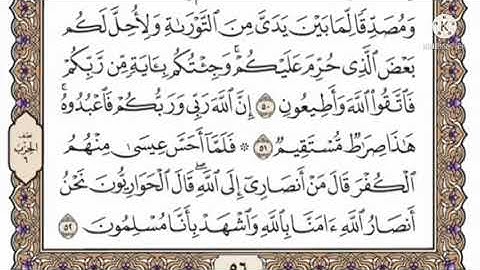 وَمُصَدِّقًا لِّمَا بَيْنَ يَدَىَّ مِنَ ٱلتَّوْرَىٰةِ وَلِأُحِلَّ لَكُم
بَعْضَ ٱلَّذِى حُرِّمَ عَلَيْكُمْ ۚ وَجِئْتُكُم بِـَٔايَةٍ مِّن رَّبِّكُمْ
فَٱتَّقُوا۟ ٱللَّهَ وَأَطِيعُونِ ٥٠ إِنَّ ٱللَّهَ رَبِّى وَرَبُّكُمْ فَٱعْبُدُوهُ ۚ
هَـٰذَا صِرَٰطٌ مُّسْتَقِيمٌ ٥١ ۞ فَلَمَّآ أَحَسَّ عِيسَىٰ مِنْهُمُ
ٱلْكُفْرَ قَالَ مَنْ أَنصَارِىٓ إِلَى ٱللَّهِ ۖ قَالَ ٱلْحَوَارِيُّونَ نَحْنُ
أَنصَارُ ٱللَّهِ ءَامَنَّا بِٱللَّهِ وَٱشْهَدْ بِأَنَّا مُسْلِمُونَ ٥٢
نصف
الحزب
٦
٥٦